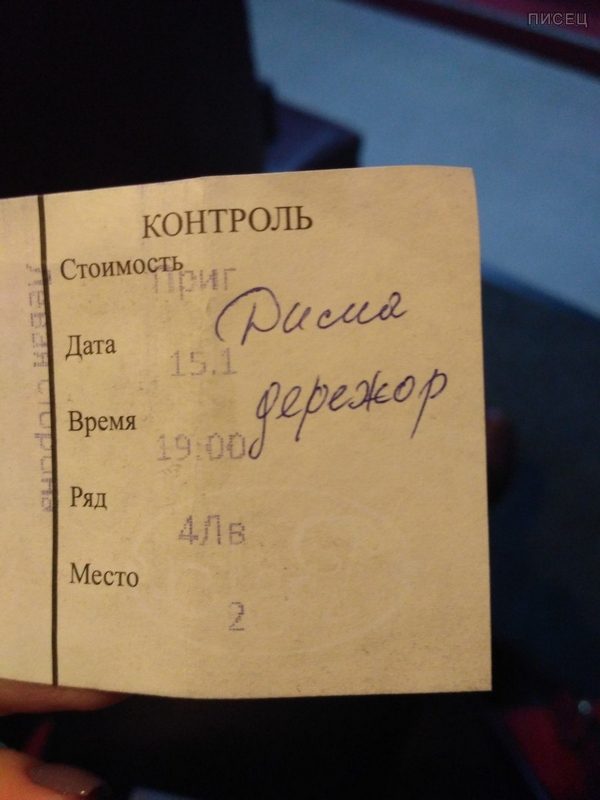 ПИСЕЦ
КОНТРОЛЬ
Стоимость Приг
Дима
Дата 15.1
дережор
Время 19:00
Ряд 4Лв
Место 2
Левая сторона